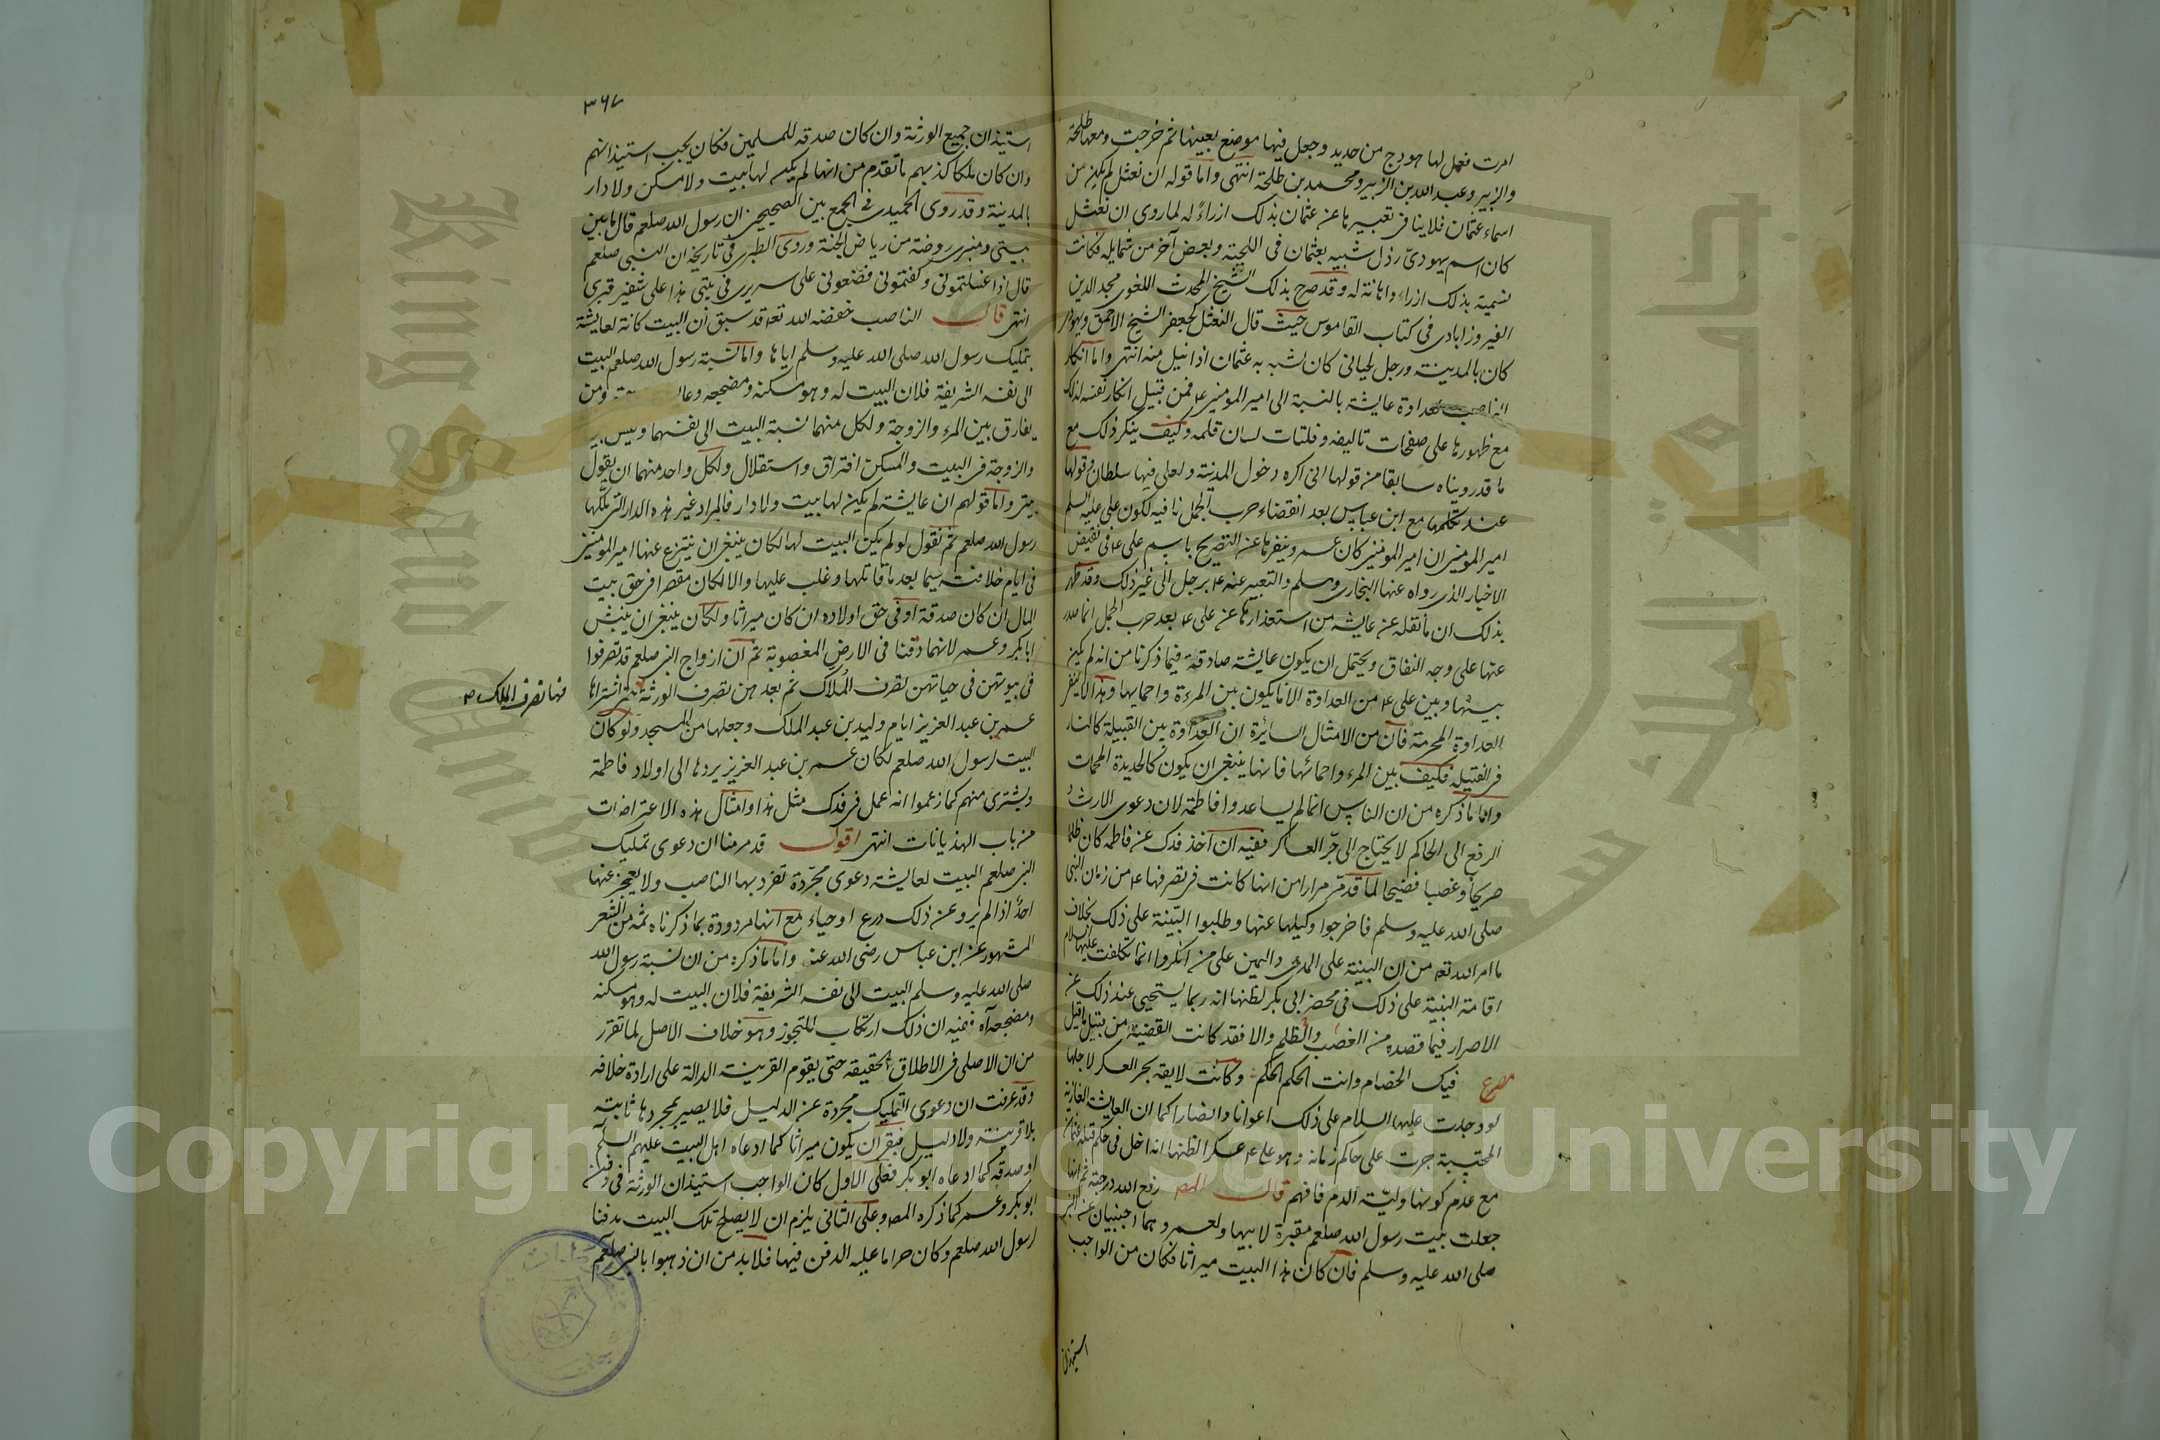 امرت فعمل لها هودج من حديد وجعل فيها موضع بعينها ثم خرجت ومعها طلحة
والزبير وعبد الله بن الزبير ومحمد بن طلحة انتهى واما قوله ان نعثل لم يكن من
اسماء عثمان فلا ينافى تعبيرها عن عثمان بذلك ازراءً له لما روى ان نعثل
كان اسم يهودىّ رذل شبيه بعثمان فى اللحية وبعض آخر من شمايله فكانت
تسميته بذلك ازراء واهانة له وقد صرح بذلك الشيخ المحدث اللغوى مجد الدين
الفيروزابادى فى كتاب القاموس حيث قال النعثل كجعفر الشيخ الاحمق ويهودى
كان بالمدينة ورجل لحيانى كان يشبه به عثمان اذا نيل منه انتهى واما انكار
الناصب عداوة عايشة بالنسبة الى امير المومنين ع فمن قبيل انكار نفسه لذلك
مع ظهورها على صفحات تاليفه وفلتات لسان قلمه وكيف ينكر ذلك مع
ما قد رويناه سابقا من قولها انى اكره دخول المدينة ولعلى فيها سلطان وقولها
عند تكلمها مع ابن عباس بعد انقضاء حرب الجمل نافية لكون على عليه السلم
امير المومنين ان امير المومنين كان عمر وبنفرتها عن التصريح باسم على ع فى بعض
الاخبار الذى رواه عنها البخارى ومسلم والتعبير عنه ع برجل الى غير ذلك وقد ظهر
بذلك ان ما نقله عن عايشة من استعذارها عن على ع بعد حرب الجمل انما صدر
عنها على وجه النفاق ويحتمل ان يكون عايشة صادقة فيما ذكرنا من انه لم يكن
بينها وبين على ع من العداوة الا ما يكون بين المرءة واحمايها وهذا لا ينفى
العداوة المحرمة فان من الامثال السائرة ان العداوة بين القبيلة كالنار
فى الفتيلة فكيف بين المرء واحمائها فانها ينبغى ان يكون كالحديدة المحماة
واما ما ذكره من ان الناس انما لم يساعدوا فاطمة لان دعوى الارث و
الرفع الى الحاكم لا يحتاج الى جرّ العساكر ففيه ان اخذ فدك عن فاطمة كان ظلما
صريحا وغصبا فضيحا لما قدمر مرارا من انها كانت فى تصرفها ع من زمان النبى
صلى الله عليه وسلم فاخرجوا وكيلها عنها وطلبوا البيّنة على ذلك بخلاف
ما امر الله تعه من ان البينة على المدعى واليمين على من انكر وانما تكلفت عليها السلام
اقامة البينة على ذلك فى محضر ابى بكر لظنها انه ربما يستحيى عند ذلك عن
الاصرار فيما قصده من الغصب والظلم والا فقد كانت القضية من قبيل ما قيل
مصرع فيك الخصام وانت الحكم الحكم وكانت لايقة بجر العسكر لاجلها
لو وجدت عليها السلام على ذلك اعوانا وانصارا كما ان العايشة الغازية
المحتسبة جرت على حاكم زمانه وهو على ع عسكرا لظنها انه اخل فى حكم قتلة عثمان
مع عدم كونها وليّة الدم فافهم قال المص رفع الله درجته ثم انها
جعلت بيت رسول الله صلعم مقبرة لابيها ولعمر وهما اجنبيان عن النبى
صلى الله عليه وسلم فان كان هذا البيت ميراثا فكان من الواجب
استيذان
٣٦٧
استيذان جميع الورثة وان كان صدقة للمسلمين فكان يجب استيذانهم
وان كان ملكا كذبهم ما تقدم من انها لم يكن لها بيت ولا مسكن ولا دار
بالمدينة وقد روى الحميدى فى الجمع بين الصحيحين ان رسول الله صلعم قال ما بين
بيتى ومنبرى روضة من رياض الجنة وروى الطبرى فى تاريخه ان النبى صلعم
قال اذا غسلتمونى وكفنتمونى فضعونى على سريرى فى بيتى هذا على شفير قبرى
انتهى قال الناصب خفضه الله تعه قد سبق ان البيت كانة لعايشة
بتمليك رسول الله صلى الله عليه وسلم اياها واما نسبة رسول الله صلعم البيت
الى نفسه الشريفة فلان البيت له وهو مسكنه ومضجعه ومن
يفارق بين المرء والزوجة ولكل منهما نسبة البيت الى نفسهما وليس بين
والزوجة فى البيت والمسكن افتراق واستقلال ولكل واحد منهما ان يقول
بيتى واما قولهم ان عايشة لم يكن لها بيت ولا دار فالمراد غير هذه الدار التى ملّكها
رسول الله صلعم ثم نقول لو لم يكن البيت لها لكان ينبغى ان ينتزع عنها امير المومنين
فى ايام خلافته سيما بعد ما قاتلها وغلب عليها والا لكان مقصرا فى حق بيت
المال ان كان صدقة او فى حق اولاده ان كان ميراثا ولكان ينبغى ان ينبش
ابا بكر وعمر لانهما دفنا فى الارض المغصوبة ثم ان ازواج النبى صلعم قد تصرفوا
فى بيوتهن فى حياتهن تصرف المُلاّك ثم بعدهن تصرف الورثة حتى اشتراها
فيها تصرف الملك
عمر بن عبد العزيز ايام وليد بن عبد الملك وجعلها من المسجد ولو كان
البيت لرسول الله صلعم لكان عمر بن عبد العزيز يردها الى اولاد فاطمة
ويشترى منهم كما زعموا انه عمل فى فدك مثل هذا وامثال هذه الاعتراضات
من باب الهذيانات انتهى اقول قد مر منا ان دعوى تمليك
النبى صلعم البيت لعايشة دعوى مجرّدة تفرد بها الناصب ولا يعجز عنها
احدٌ اذا لم يروعن ذلك ورع او حياء مع انها مردودة بما ذكرناه ثمه من الشعر
المشهور عن ابن عباس رضى الله عنه واما ما ذكره من ان نسبة رسول الله
صلى الله عليه وسلم البيت الى نفسه الشريفة فلان البيت له وهو مسكنه
ومضجعه آه ففيه ان ذلك ارتكاب للتجوز وهو خلاف الاصل لما تقرر
من ان الاصل فى الاطلاق الحقيقة حتى يقوم القرينة الدالة على ارادة خلافه
وقد عرفت ان دعوى التمليك مجردة عن الدليل فلا يصير بمجردها ثابتة
بلا قرينة ولا دليل فبقى ان يكون ميراثا كما ادعاه اهل البيت عليهم السلم
او صدقة كما ادعاه ابو بكر فعلى الاول كان الواجب استيذان الورثة فى دفن
ابو بكر وعمر كما ذكره المص وعلى الثانى يلزم ان لا يصلح تلك البيت مدفنا
لرسول الله صلعم وكان حراما عليه الدفن فيها فلا بد من ان ذهبوا بالنبى صلعم
Copyright © King Saud University
King Saud University
جامعة الملك سعود